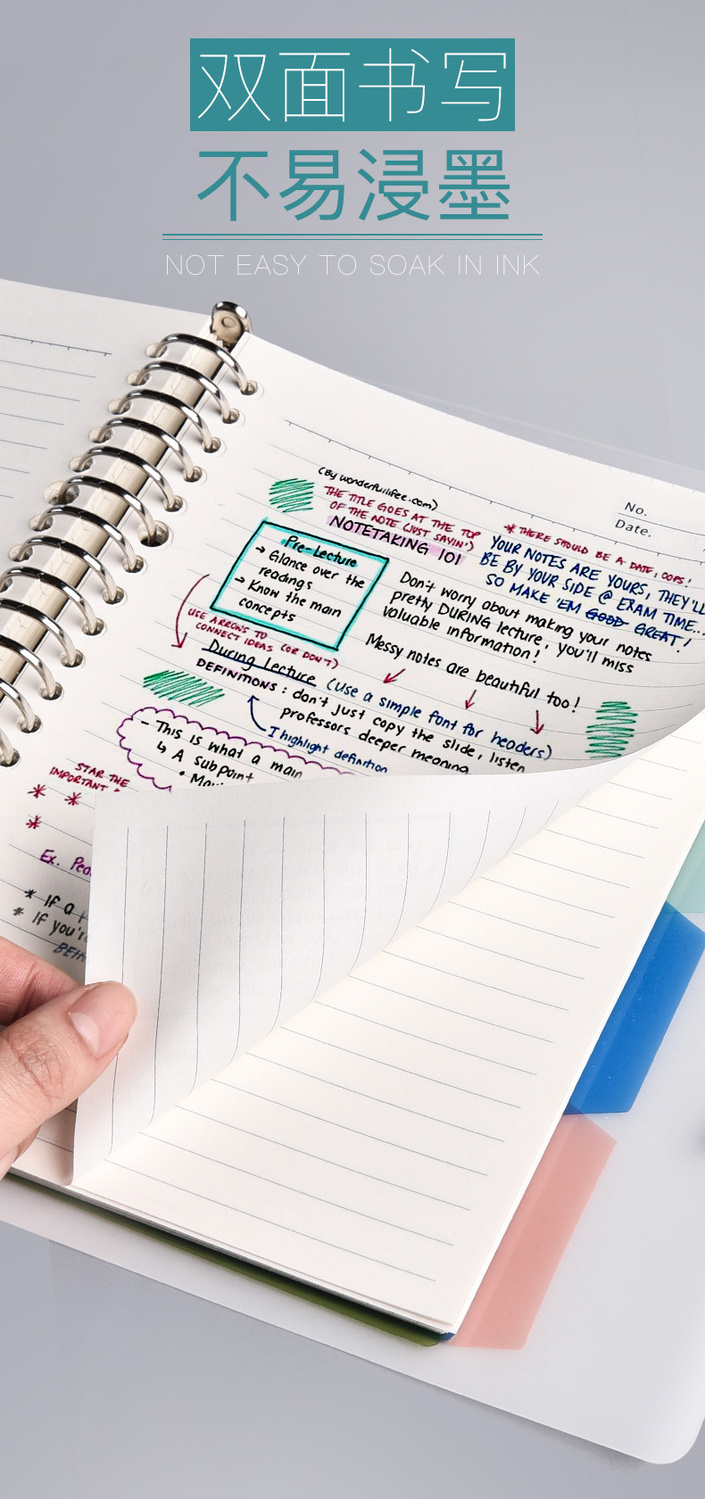 双面书写
不易浸墨
NOT EASY TO SOAK IN INK
No.
Date.
(By wonderfullifee.com)
THE TITLE GOES AT THE TOP
OF THE NOTE (JUST SAYIN')
NOTETAKING 101
* THERE SHOULD BE A DATE, OOPS!
YOUR NOTES ARE YOURS, THEY'LL
BE BY YOUR SIDE @ EXAM TIME...
SO MAKE 'EM GOOD GREAT!
Pre-Lecture
→ Glance over the
readings
→ Know the main
concepts
Don't worry about making your notes
pretty DURING lecture, you'll miss
valuable information!
Messy notes are beautiful too!
USE ARROWS TO
CONNECT IDEAS (OR DON'T)
During Lecture (use a simple font for headers)
DEFINITIONS: don't just copy the slide, listen
professors deeper meaning
I highlight definition
- This is what a main
↳ A subpoint
STAR THE
IMPORTANT
Ex.
* If a
* If you're